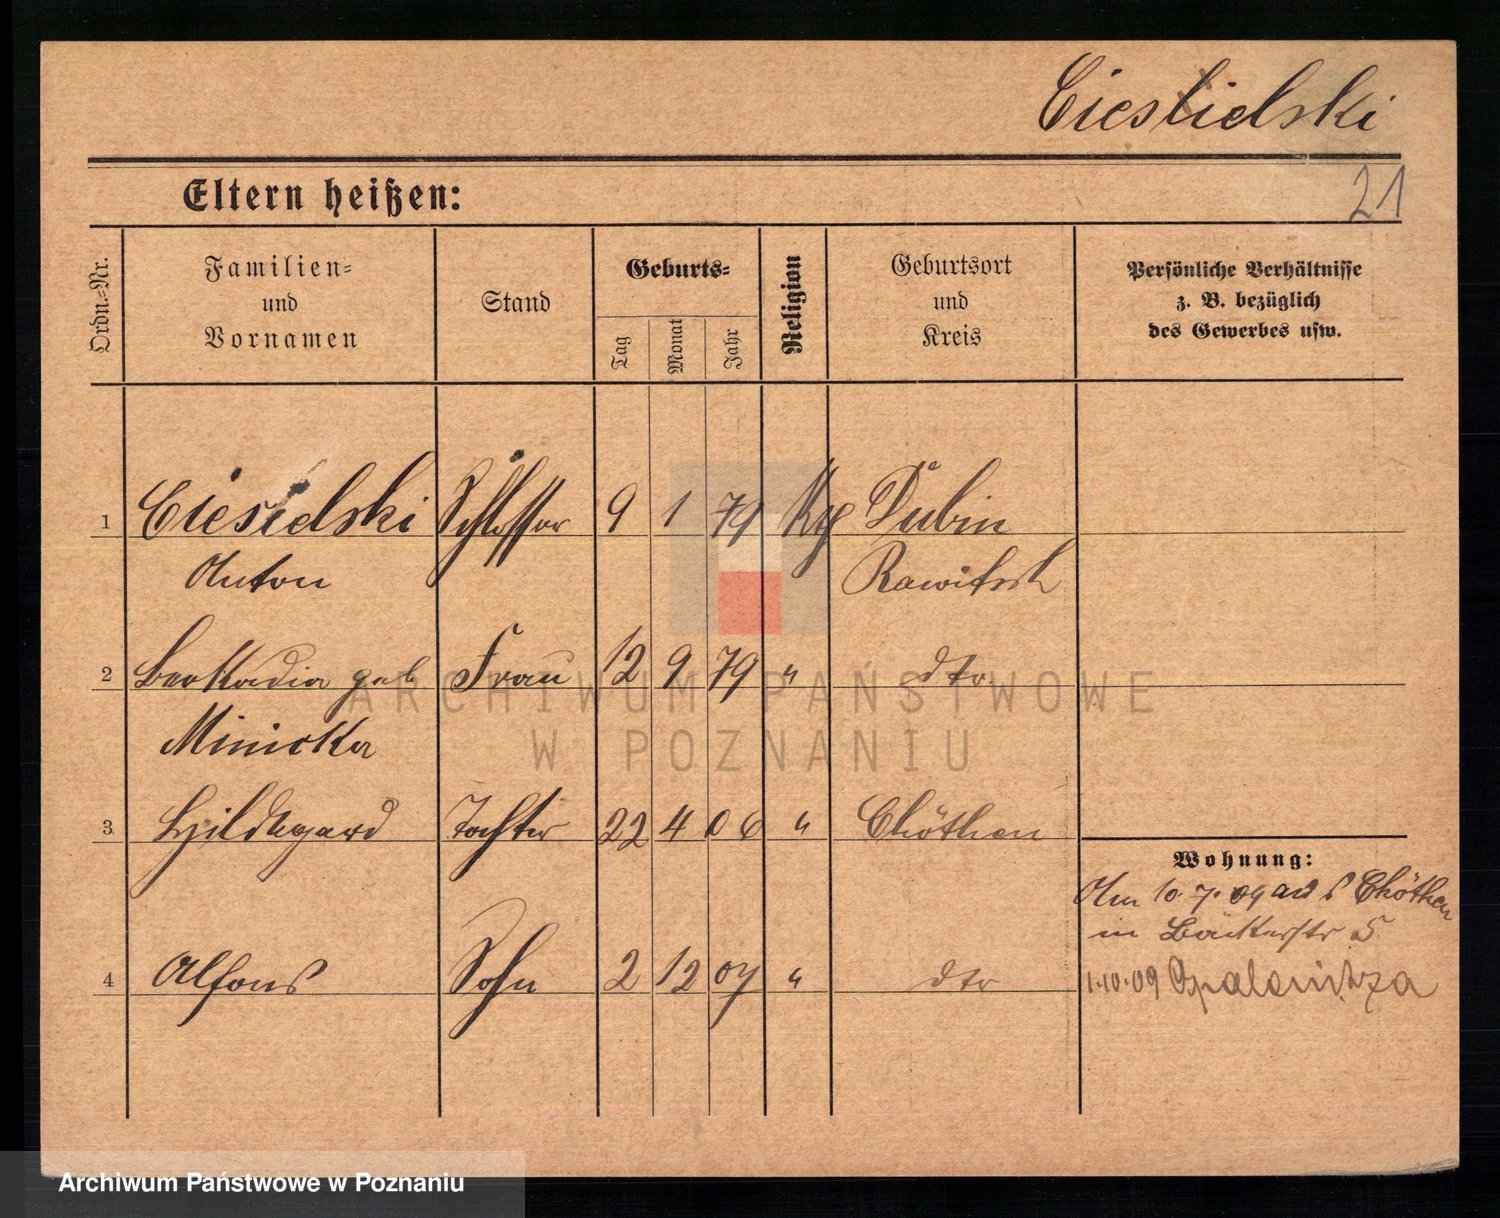 Ciesielski
21
Eltern heißen:
Ordn.-Nr.
Familien-
und
Vornamen
Stand
Geburts-
Tag
Monat
Jahr
Religion
Geburtsort
und
Kreis
Persönliche Verhältnisse
z. B. bezüglich
des Gewerbes usw.
1 Ciesielski Schlosser 9 1 79 Kth Dubin
Anton Rawitsch
2 Leokadia geb Frau 12 9 79 " dto
Minicka
3 Hildegard Tochter 22 4 06 " Cköthen
Wohnung:
Am 10 7. 09 aus Cköthen
in Bäckerstr 5
4 Alfons Sohn 2 12 07 " dto
1.10.09 Opalenitza
ARCHIWUM PAŃSTWOWE
W POZNANIU
Archiwum Państwowe w Poznaniu